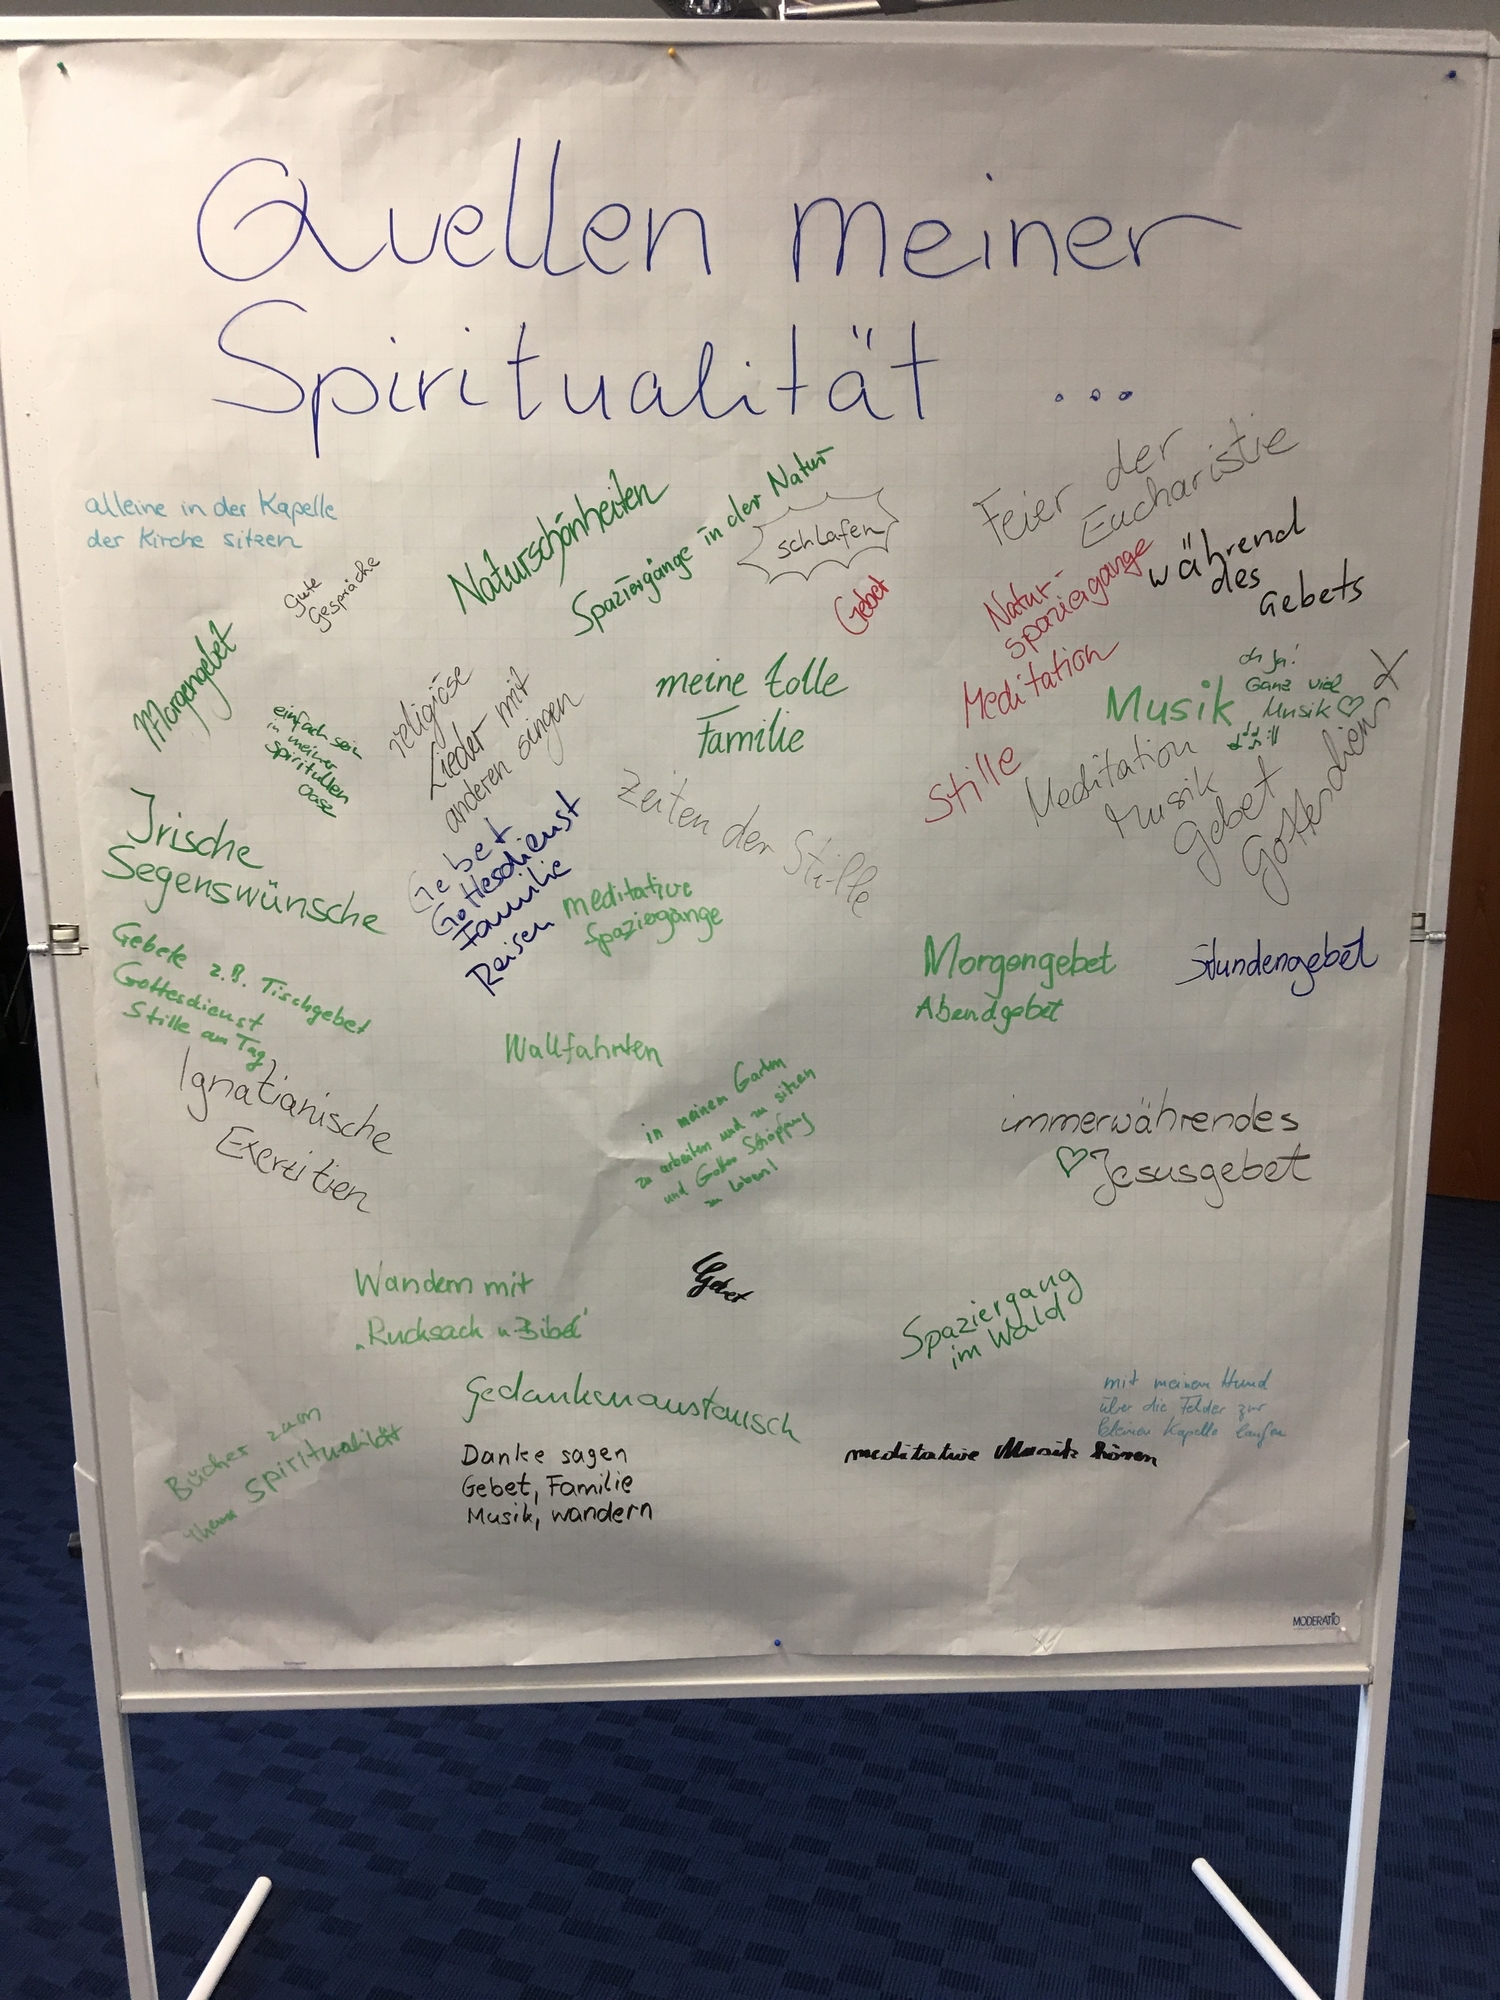 Quellen meiner
Spiritualität ...
alleine in der Kapelle
der Kirche sitzen
Gute
Gespräche
Naturschönheiten
Spaziergänge in der Natur
schlafen
Gebet
Feier der
Eucharistie
während
des
Gebets
Natur-
spaziergänge
Meditation
Stille
Morgengebet
einfach sein
in meiner
spirituellen
Oase
religiöse
Lieder mit
anderen singen
meine tolle
Familie
Musik
oh ja!
Ganz viel
Musik
Meditation
Musik
Gebet
Gottesdienst
Zeiten der Stille
Irische
Segenswünsche
Gebet
Gottesdienst
Familie
Reisen
meditative
Spaziergänge
Gebete z.B. Tischgebet
Gottesdienst
Stille am Tag
Morgengebet
Abendgebet
Stundengebet
Ignatianische
Exerzitien
Wallfahrten
in meinem Garten
zu arbeiten und zu sitzen
und Gottes Schöpfung
zu loben!
immerwährendes
Jesusgebet
Wandern mit
„Rucksack u. Bibel"
Gebet
Spaziergang
im Wald
Gedankenaustausch
mit meinem Hund
über die Felder zur
kleinen Kapelle laufen
Bücher zum
Thema Spiritualität
Danke sagen
Gebet, Familie
Musik, wandern
meditative Musik hören
MODERATIO